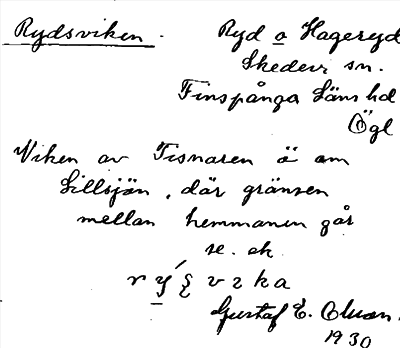 Rydsviken. Ryd o Hageryd
Skedevi sn.
Finspånga Läns hd
Ögl
Viken av Tisnaren ö om
Lillsjön, där gränsen
mellan hemmanen går
se. ek.
Gustaf E.
1930